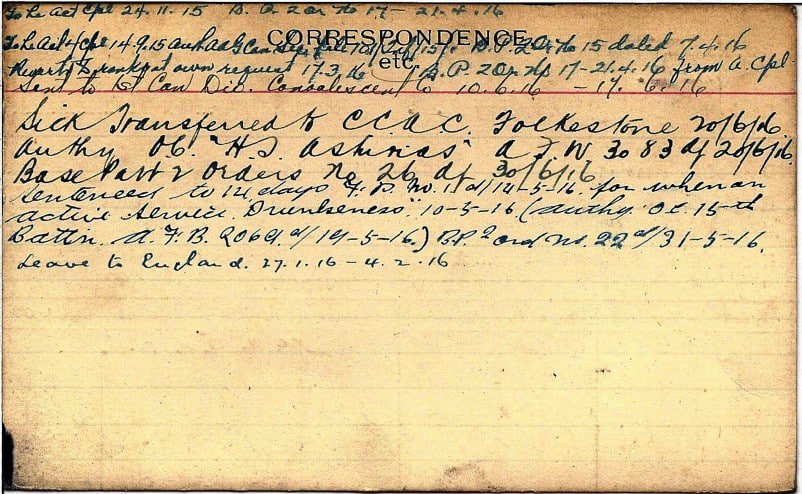 To be Act Cpl 24.11.15 B. O. 2 Or No 17 - 21.4.16
CORRESPONDENCE,
To be Act L/Cpl 14.9.15 Auth Can B.P. 2 Or No 15 dated 7.4.16
etc.
Reverts to ranks at own request 17.3.16 B.P. 2 Or No 17-21.4.16 from a. Cpl.
Sent to Can Div. Convalescent Co 10.6.16 - 17.6.16
Sick Transferred to C.C.A.C. Folkestone 20/6/16.
Authy OC. "H.S. " A.F.W. 3083 df 20/6/16.
Base Part 2 Orders No 26 df 30/6/16.
Sentenced to 14 days F. P. No. 1 d/14-5-16. for when on
active service. Drunkeness" 10-5-16 (authy. O.C. 15th
Battn. A.F.B. 2069 d/19-5-16.) B.P.2 ord No. 22 d/31-5-16.
Leave to England. 27.1.16 - 4.2.16